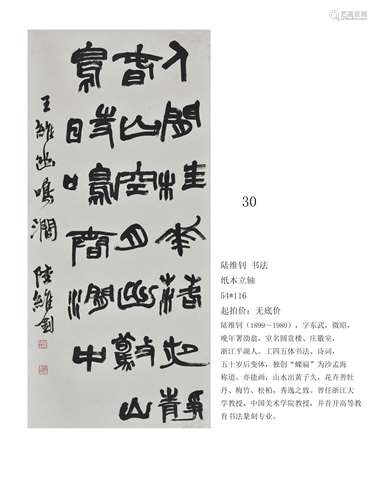 人閒桂華落夜靜
春山空月出驚山
鳥時鳴春澗中
王維幽鳴澗
陸維釗
30
陆维钊 书法
纸本立轴
54*116
起拍价：无底价
陆维钊（1899～1980），字东武，微昭，
晚年署劭翁，室名圆赏楼、庄徽室，
浙江平湖人。工四五体书法、诗词，
五十岁后变体，独创“螺扁”为沙孟海
称道。亦能画，山水出黄子久，花卉善牡
丹、梅竹、松柏，秀逸之致。曾任浙江大
学教授，中国美术学院教授，并首开高等教
育书法篆刻专业。